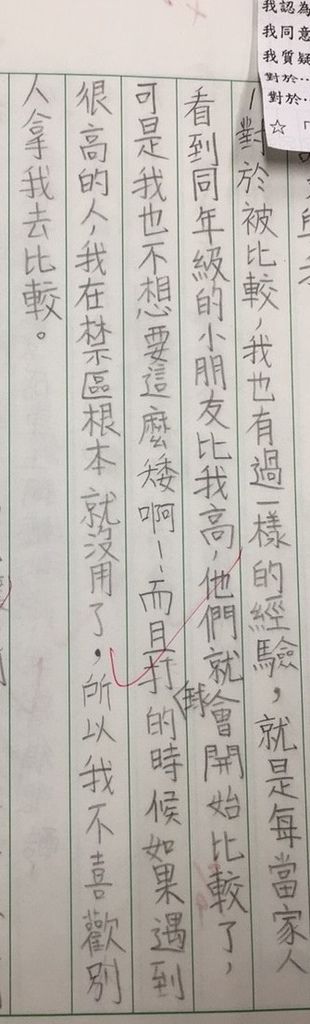 我認為
我同意
我質疑
對於…
對於…
☆「
對於被比較,我也有過一樣的經驗,就是每當家人
看到同年級的小朋友比我高,他們就會開始比較了,
可是我也不想要這麼矮啊!而且打球的時候如果遇到
很高的人,我在禁區根本就沒用了,所以我不喜歡別
人拿我去比較。